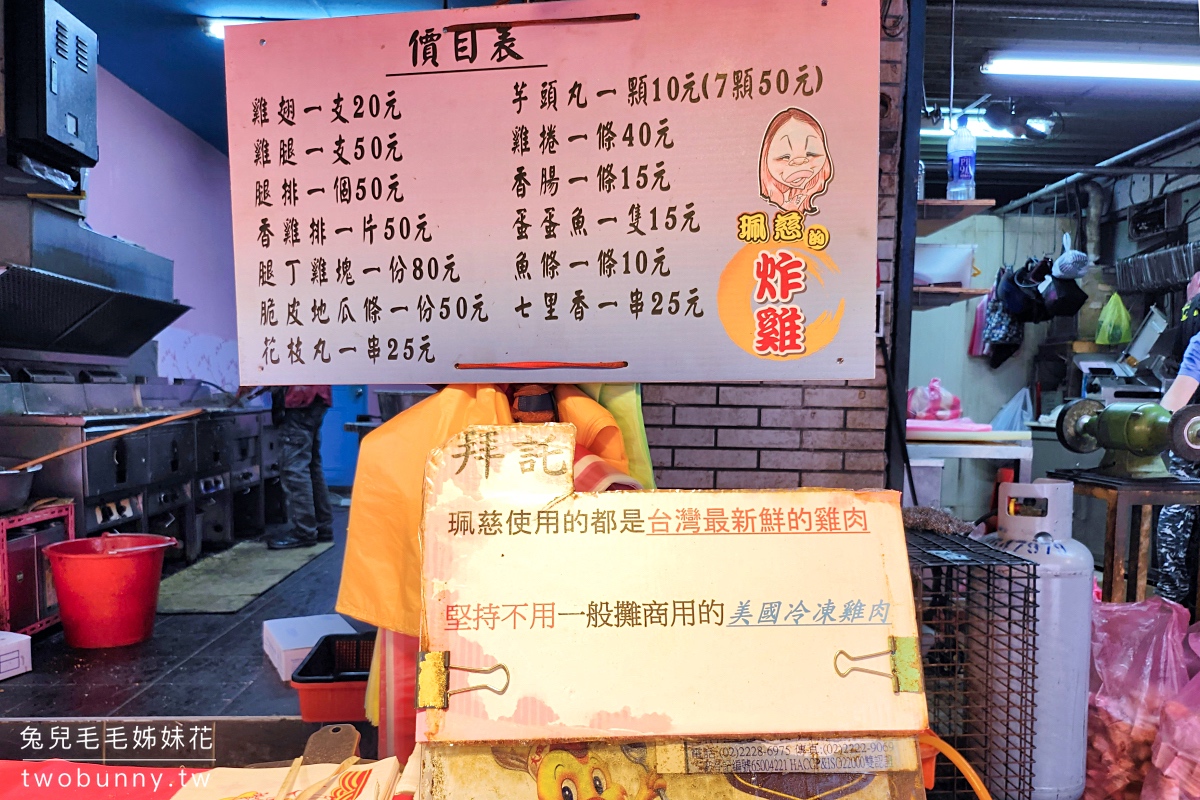 價目表
雞翅一支20元
雞腿一支50元
腿排一個50元
香雞排一片50元
腿丁雞塊一份80元
脆皮地瓜條一份50元
花枝丸一串25元
芋頭丸一顆10元(7顆50元)
雞捲一條40元
香腸一條15元
蛋蛋魚一隻15元
魚條一條10元
七里香一串25元
珮慈的
炸雞
拜託
珮慈使用的都是台灣最新鮮的雞肉
堅持不用一般攤商用的美國冷凍雞肉
(02)2228-6975 傳真:(02)2222-9069
編號65004221 HACCP&ISO22000雙認證
兔兒毛毛姊妹花
twobunny.tw